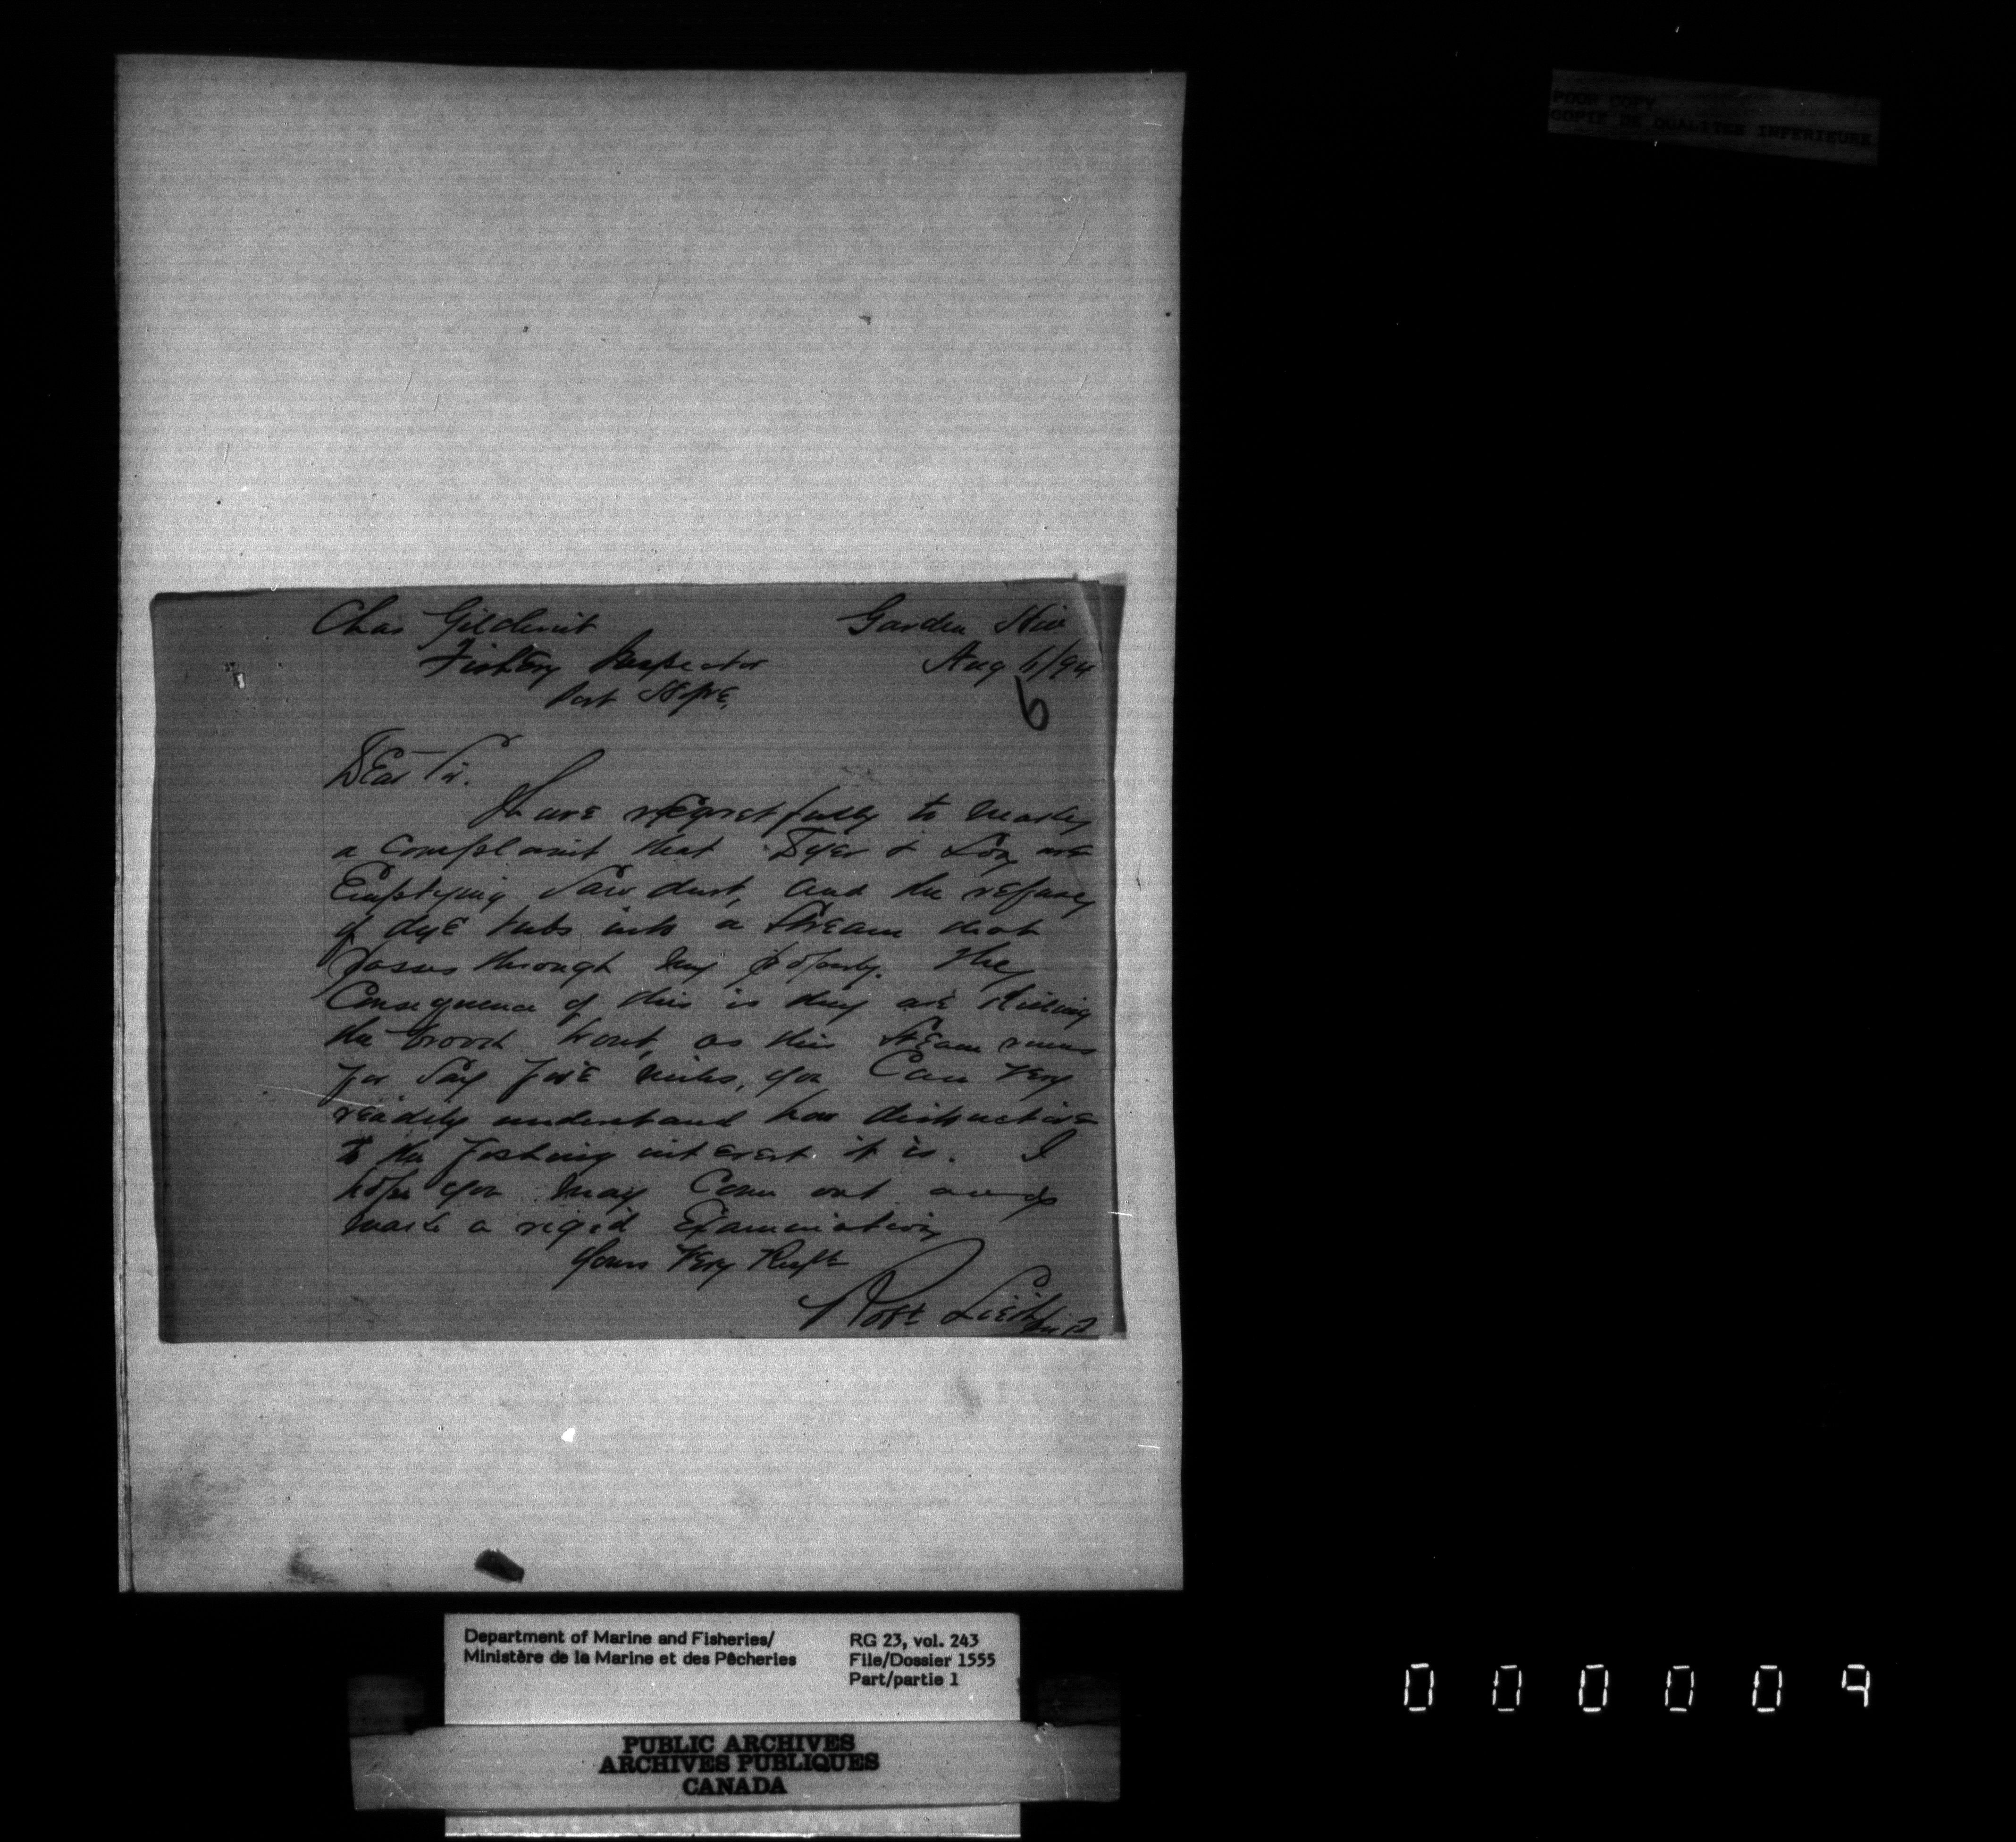 POOR COPY
COPIE DE QUALITEE INFERIEURE
Chas Gilchrist Garden Hill
Fishery Inspector Aug 6/94
Port Hope, 6
Dear Sir.
Have regretfully to make
a complaint that Dyer & Son are
Emptying Saw dust, and the refuse
of dye tubs into a stream that
passes through my property. The
Consequence of this is they are killing
the brook trout, as this stream runs
for say five miles, you Can very
readily understand how distructive
to the fishing interest it is. I
hope you may Come out and
make a rigid Examination
Yours Very Respt
Robt
Department of Marine and Fisheries/
Ministère de la Marine et des Pêcheries
RG 23, vol. 243
File/Dossier 1555
Part/partie 1
PUBLIC ARCHIVES
ARCHIVES PUBLIQUES
CANADA
000009